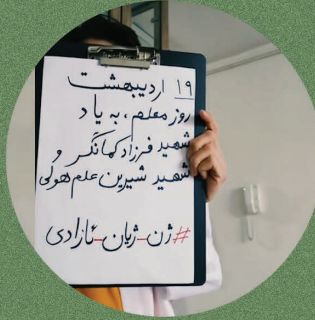 ۱۹ اردیبهشت
روز معلم، به یاد
شهید فرزاد کمانگر و
شهید شیرین علم هولی
#ژن_ژیان_ئازادی